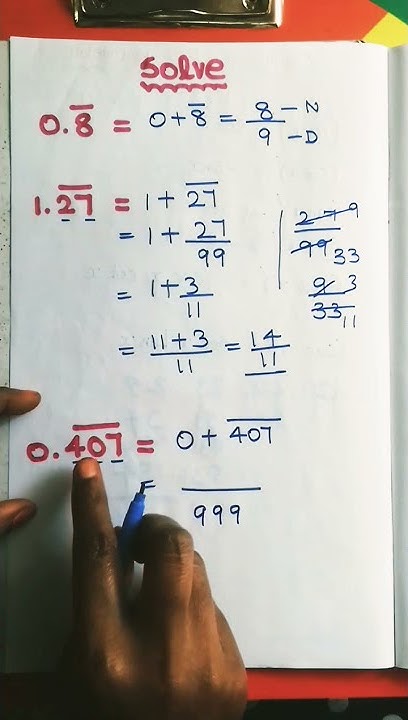 Solve
0.8̅ = 0 + 8̅ = 8/9 – N – D
1.2̅7̅ = 1 + 2̅7̅
= 1 + 27/99
= 1 + 3/11
= 11 + 3/11 = 14/11
27 9
99 33
9 3
33 11
0.4̅0̅7̅ = 0 + 4̅0̅7̅
= /999